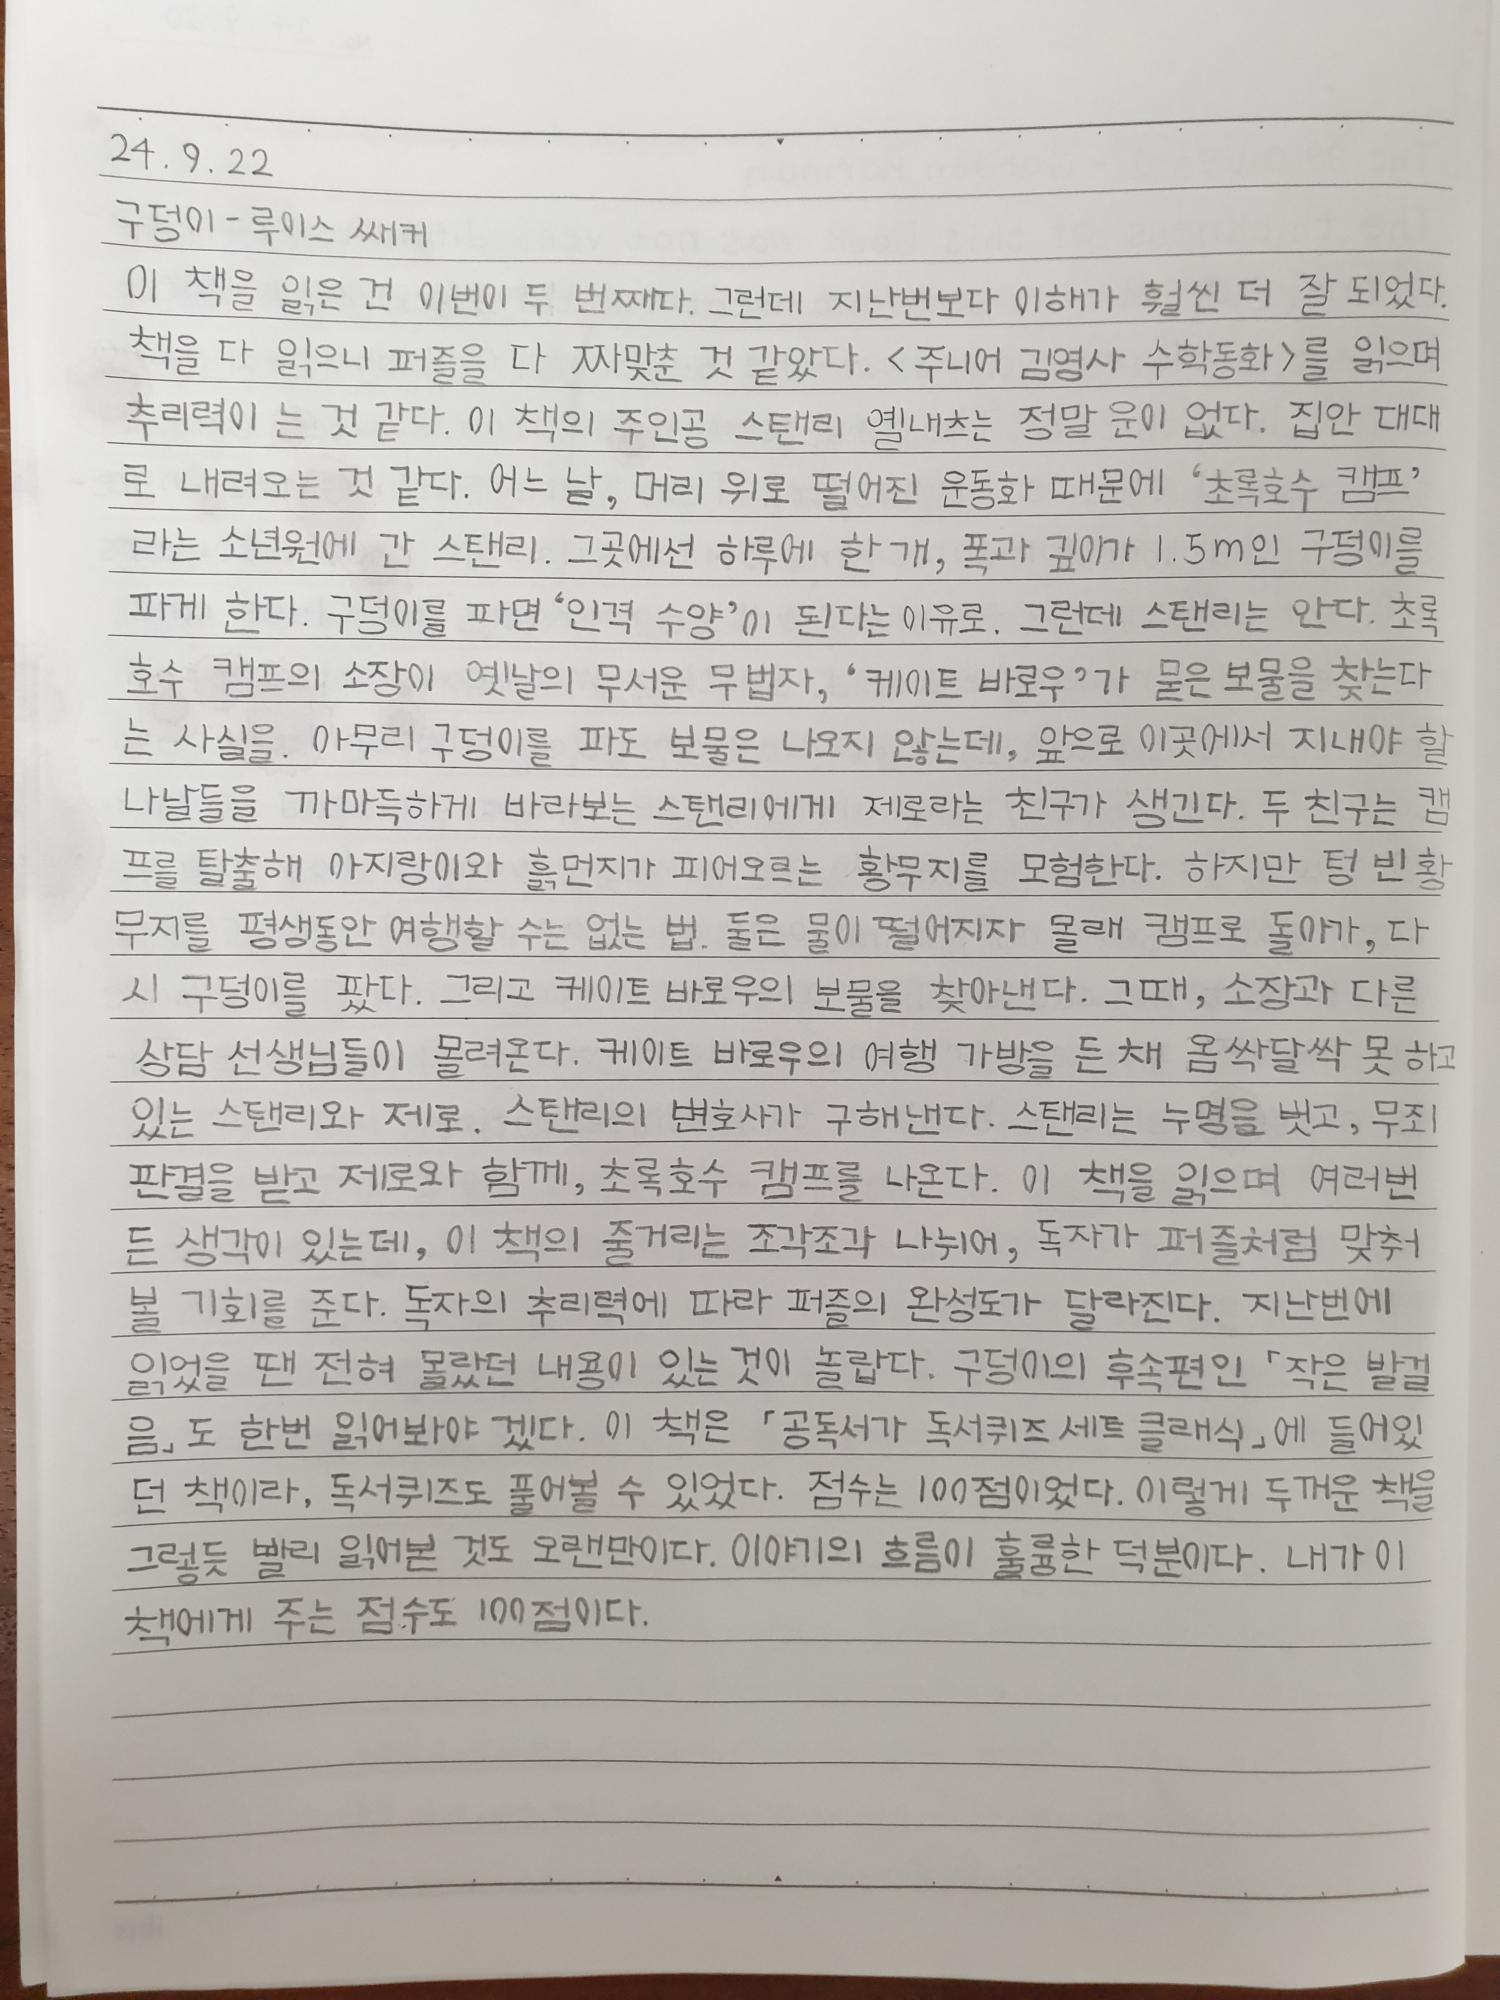 24. 9. 22
구덩이 - 루이스 쌔커
이 책을 읽은 건 이번이 두 번째다. 그런데 지난번보다 이해가 훨씬 더 잘 되었다.
책을 다 읽으니 퍼즐을 다 짜맞춘 것 같았다. <주니어 김영사 수학동화>를 읽으며
추리력이 는 것 같다. 이 책의 주인공 스탠리 옐내츠는 정말 운이 없다. 집안 대대
로 내려오는 것 같다. 어느 날, 머리 위로 떨어진 운동화 때문에 '초록호수 캠프'
라는 소년원에 간 스탠리. 그곳에선 하루에 한 개, 폭과 깊이가 1.5m인 구덩이를
파게 한다. 구덩이를 파면 '인격 수양'이 된다는 이유로. 그런데 스탠리는 안다. 초록
호수 캠프의 소장이 옛날의 무서운 무법자, '케이트 바로우'가 묻은 보물을 찾는다
는 사실을. 아무리 구덩이를 파도 보물은 나오지 않는데, 앞으로 이곳에서 지내야 할
나날들을 까마득하게 바라보는 스탠리에게 제로라는 친구가 생긴다. 두 친구는 캠
프를 탈출해 아지랑이와 흙먼지가 피어오르는 황무지를 모험한다. 하지만 텅 빈 황
무지를 평생동안 여행할 수는 없는 법. 둘은 물이 떨어지자 몰래 캠프로 돌아가, 다
시 구덩이를 팠다. 그리고 케이트 바로우의 보물을 찾아낸다. 그때, 소장과 다른
상담 선생님들이 몰려온다. 케이트 바로우의 여행 가방을 든 채 옴싹달싹 못 하고
있는 스탠리와 제로. 스탠리의 변호사가 구해낸다. 스탠리는 누명을 벗고, 무죄
판결을 받고 제로와 함께, 초록호수 캠프를 나온다. 이 책을 읽으며 여러번
든 생각이 있는데, 이 책의 줄거리는 조각조각 나뉘어, 독자가 퍼즐처럼 맞춰
볼 기회를 준다. 독자의 추리력에 따라 퍼즐의 완성도가 달라진다. 지난번에
읽었을 땐 전혀 몰랐던 내용이 있는 것이 놀랍다. 구덩이의 후속편인 「작은 발걸
음」도 한번 읽어봐야 겠다. 이 책은 「공독서가 독서퀴즈 세트 클래식」에 들어있
던 책이라, 독서퀴즈도 풀어볼 수 있었다. 점수는 100점이었다. 이렇게 두꺼운 책을
그렇듯 빨리 읽어본 것도 오랜만이다. 이야기의 흐름이 훌륭한 덕분이다. 내가 이
책에게 주는 점수도 100점이다.